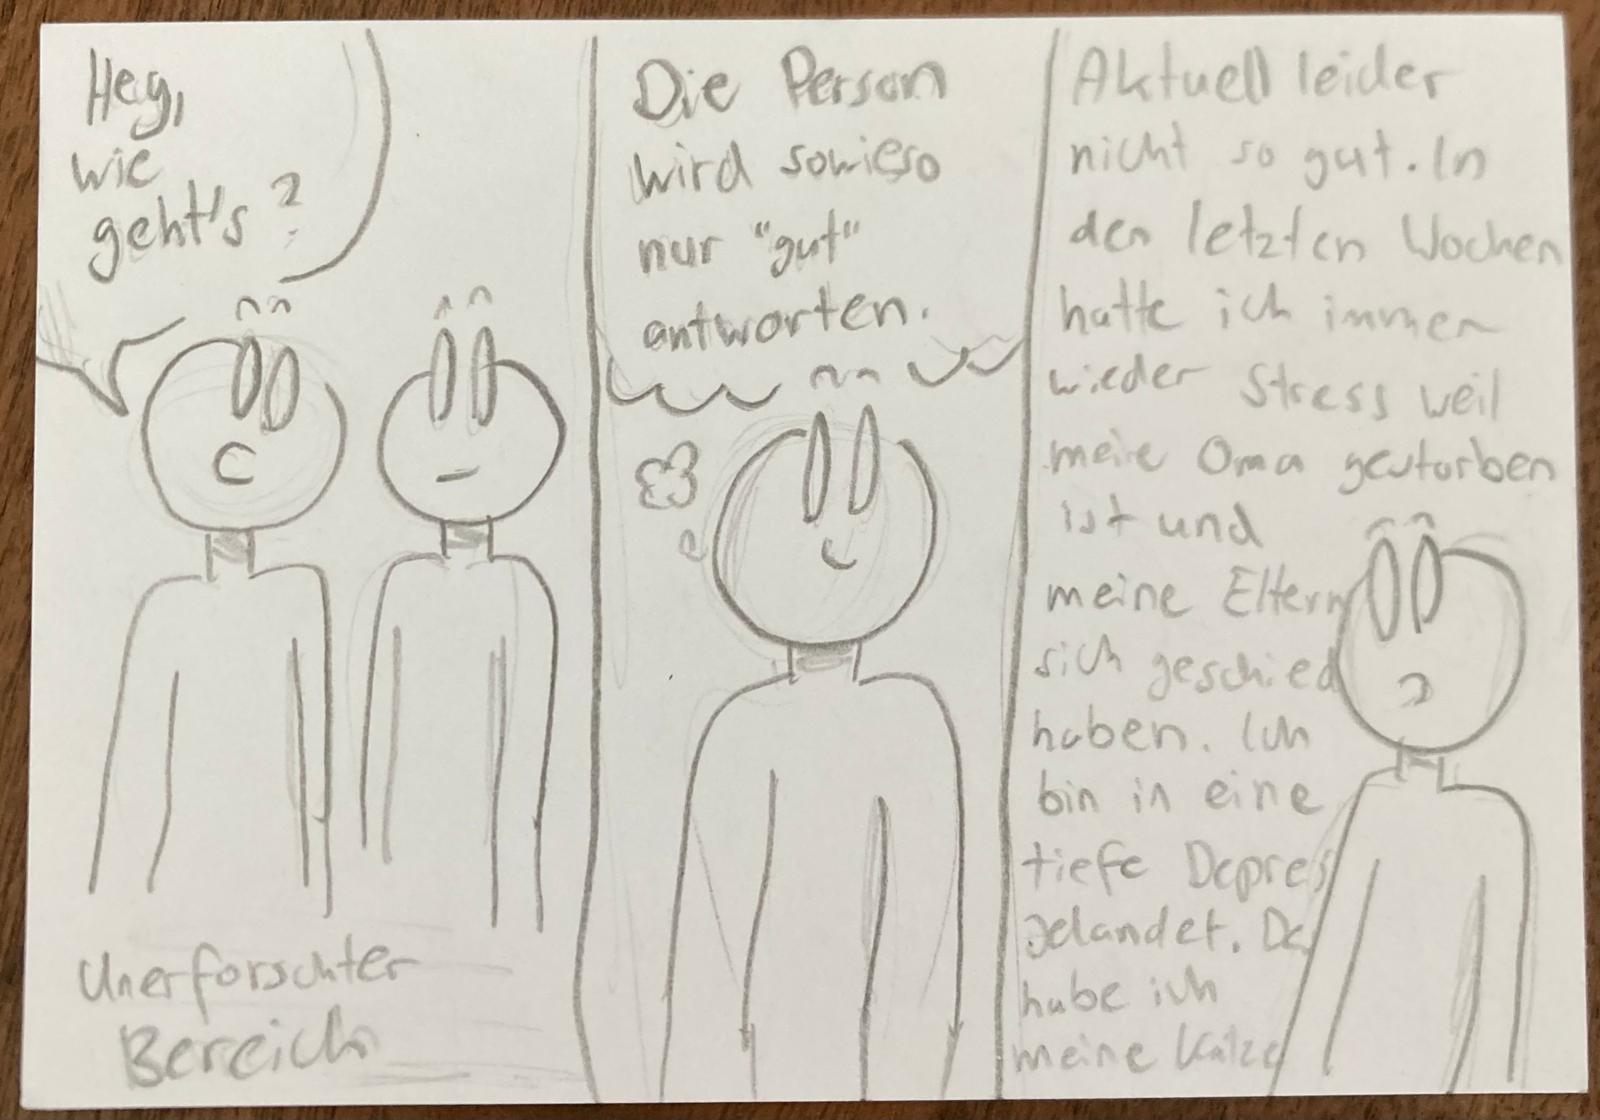 Hey,
wie
geht's?
Unerforschter
Bereich
Die Person
wird sowieso
nur "gut"
antworten.
Aktuell leider
nicht so gut. In
den letzten Wochen
hatte ich immer
wieder Stress weil
meine Oma gestorben
ist und
meine Eltern
sich geschied
haben. Ich
bin in eine
tiefe Depres
gelandet. Da
habe ich
meine Katze